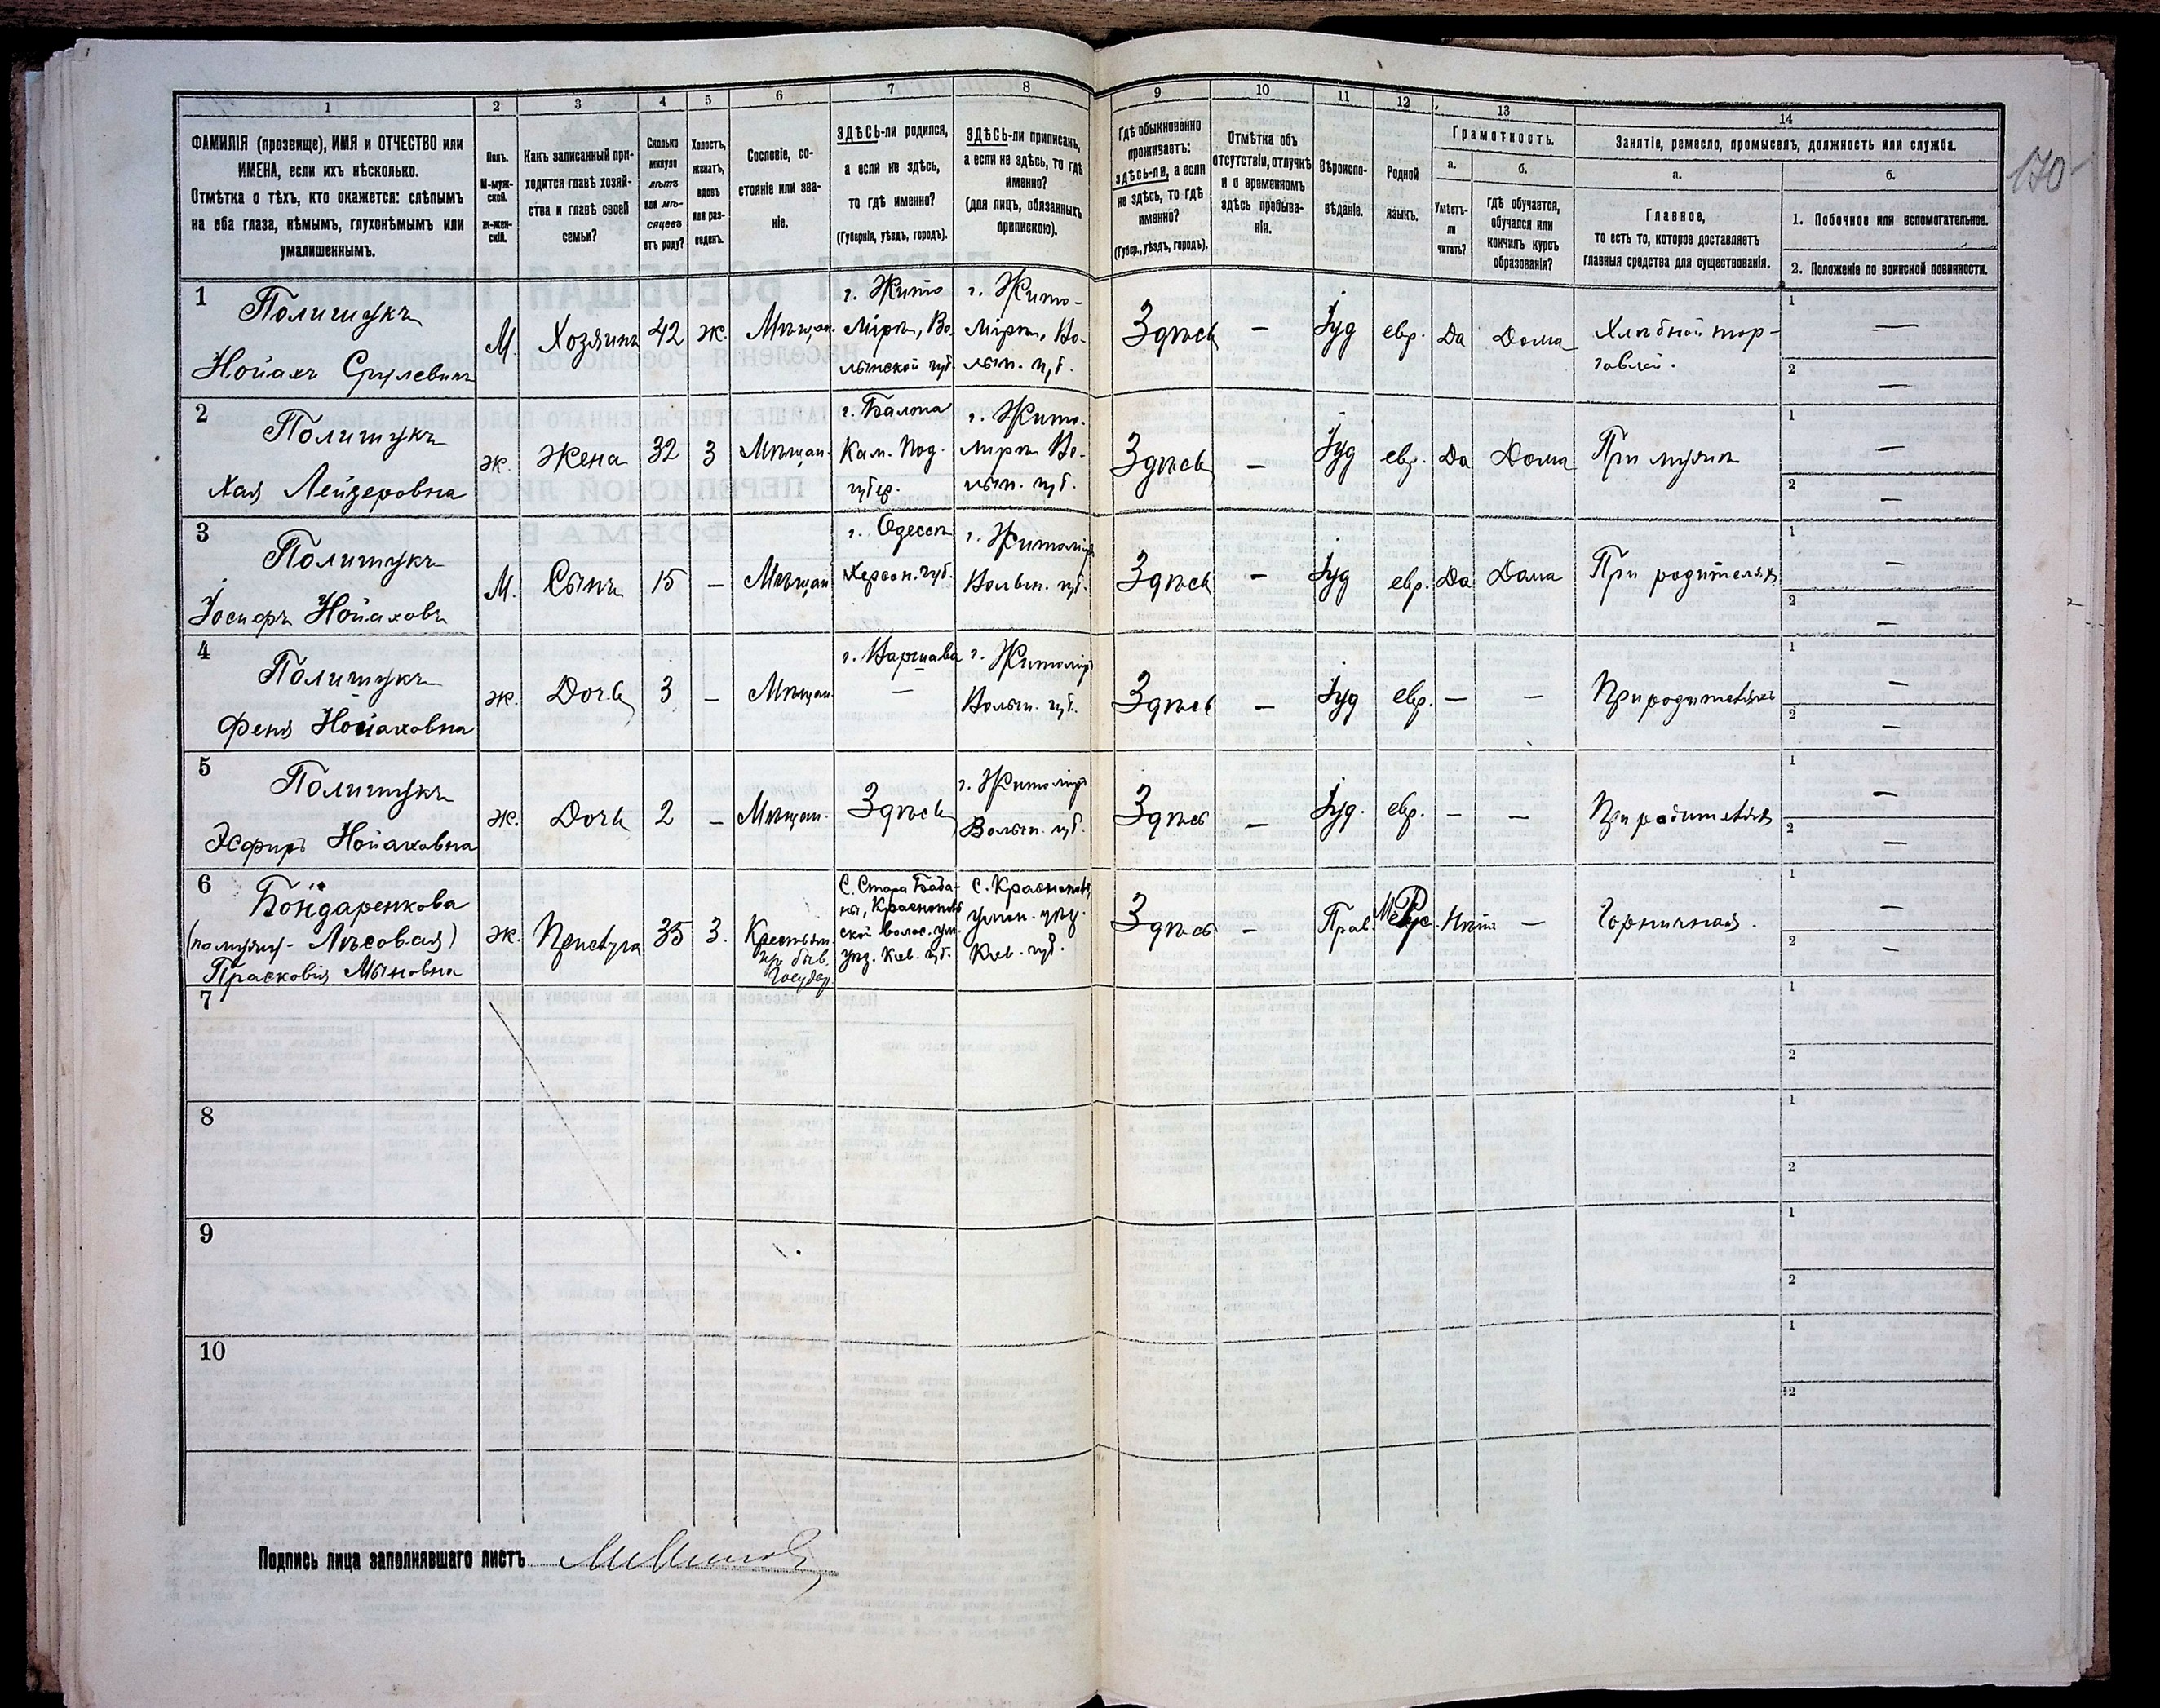 1 2 3 4 5 6 7 8 9 10 11 12 13 14
ФАМИЛІЯ (прозвище), ИМЯ и ОТЧЕСТВО или
ИМЕНА, если ихъ нѣсколько.
Отмѣтка о тѣхъ, кто окажется: слѣпымъ
на оба глаза, нѣмымъ, глухонѣмымъ или
умалишеннымъ.
Полъ.
М-муж-
ской.
ж-жен-
скій.
Какъ записанный при-
ходится главѣ хозяй-
ства и главѣ своей
семьи?
Сколько
минуло
лѣтъ
или мѣ-
сяцевъ
отъ роду?
Холостъ,
женатъ,
вдовъ
или раз-
веденъ.
Сословіе, со-
стояніе или зва-
ніе.
ЗДѢСЬ-ли родился,
а если не здѣсь,
то гдѣ именно?
(Губернія, уѣздъ, городъ).
ЗДѢСЬ-ли приписанъ,
а если не здѣсь, то гдѣ
именно?
(для лицъ, обязанныхъ
припискою).
Гдѣ обыкновенно
проживаетъ:
здѣсь-ли, а если
не здѣсь, то гдѣ
именно?
(Губер., уѣздъ, городъ).
Отмѣтка объ
отсутствіи, отлучкѣ
и о временномъ
здѣсь пребыва-
ніи.
Вѣроиспо-
вѣданіе.
Родной
языкъ.
Грамотность.
а.
Умѣетъ-
ли
читать?
б.
гдѣ обучается,
обучался или
кончилъ курсъ
образованія?
Занятіе, ремесло, промыселъ, должность или служба.
а.
Главное,
то есть то, которое доставляетъ
главныя средства для существованія.
б.
1. Побочное или вспомогательное.
2. Положеніе по воинской повинности.
170
1
Полищукъ
Нойахъ Срулевичъ
М.
Хозяинъ
42
ж.
Мѣщан.
г. Жито
міръ, Во
лынской губ.
г. Жито-
міръ, Во-
лын. губ.
Здѣсь
—
Іуд
евр.
Да
Дома
Хлѣбной тор-
говлей.
1 —
2 —
2
Полищукъ
Хая Лейзеровна
ж.
Жена
32
З
Мѣщан.
г. Балта
Кам. Под.
губер.
г. Жито.
миръ Во-
лын. губ.
Здѣсь
—
Іуд
евр.
Да
Дома
При мужѣ
1 —
2 —
3
Полищукъ
Іосифъ Нойаховъ
М.
Сынъ
15
—
Мѣщан
г. Одесса
Херсон. губ.
г. Житоміръ
Волын. губ.
Здѣсь
—
Іуд
евр.
Да
Дома
При родителяхъ
1 —
2 —
4
Полищукъ
Феня Нойаховна
ж.
Дочь
3
—
Мѣщан.
г. Варшава
—
г. Житоміръ
Волын. губ.
Здѣсь
—
Іуд
евр.
—
—
При родителяхъ
1 —
2 —
5
Полищукъ
Эсфирь Нойаховна
ж.
Дочь
2
—
Мѣщан.
Здѣсь
г. Житоміръ
Волын. губ.
Здѣсь
—
Іуд.
евр.
—
—
При родителяхъ
1 —
2 —
6
Бондаренкова
(по мужу - Лѣсовая)
Прасковія
ж.
Прислуга
35
З.
Крестьян.
изъ быв.
Государ.
С. Стара Баба-
ны,
ской волос. ум.
уѣз. Кіев. губ.
уман. уѣз.
Кіев. губ.
Здѣсь
—
Прав.
Нѣтъ
—
Горничная.
1 —
2 —
7
1
2
8
1
2
9
1
2
10
1
2
Подпись лица заполнявшаго листъ